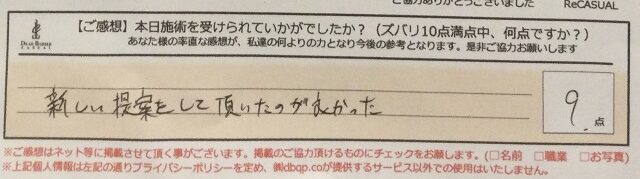 ご協力ありがとうございました ReCASUAL
DEAR BARBER
CASUAL
【ご感想】本日施術を受けられていかがでしたか?(ズバリ10点満点中、何点ですか?)
あなた様の率直な感想が、私達の何よりの力となり今後の参考となります。是非ご協力お願いします
新しい提案をして頂いたのが良かった
9.点
※ご感想はネット等に掲載させて頂く事がございます。掲載のご協力頂けるものにチェックをお願します。(□名前 □職業 □お写真)
※上記個人情報は左記の通りプライバシーポリシーを定め、㈱dbqp.coが提供するサービス以外での使用はいたしません。